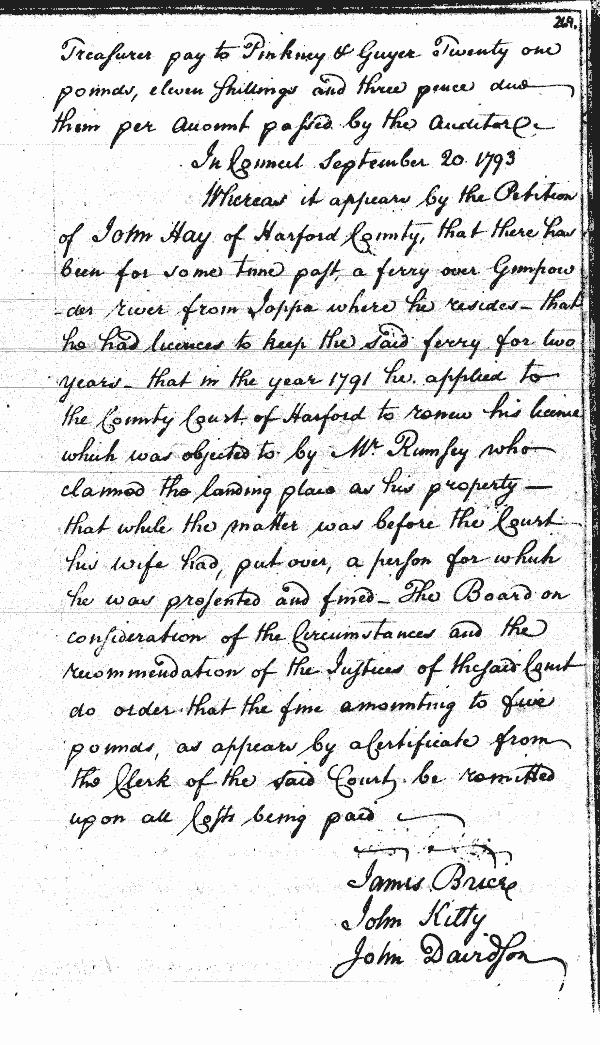 269.
Treasurer pay to Pinkney & Guyer Twenty one
pounds, eleven shillings and three pence due
them per Account passed by the Auditor
In Council September 20 1793
Whereas it appears by the Petition
of John Hay of Harford County, that there has
been for some time past a ferry over Gunpow
-der river from Joppa where he resides - that
he had licences to keep the said ferry for two
years - that in the year 1791 he applied to
the County Court of Harford to renew his licence
which was objected to by Mr. Rumsey who
claimed the landing place as his property —
that while the matter was before the Court
his wife had, put over, a person for which
he was presented and fined - The Board on
consideration of the Circumstances and the
recommendation of the Justices of the said Court
do order that the fine amounting to five
pounds, as appears by a Certificate from
the Clerk of the said Court, be remitted
upon all Costs being paid
James Brice
John Kilty
John Davidson